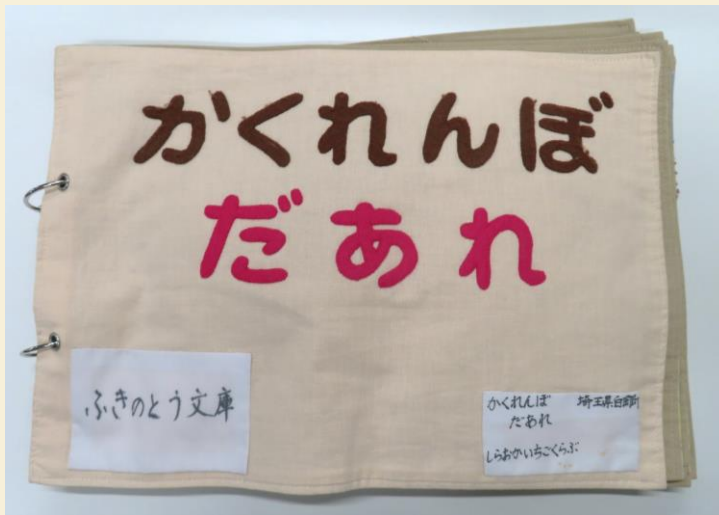 かくれんぼ
だあれ
ふきのとう文庫
かくれんぼ 埼玉県白岡町
だあれ
しらおかいちごくらぶ